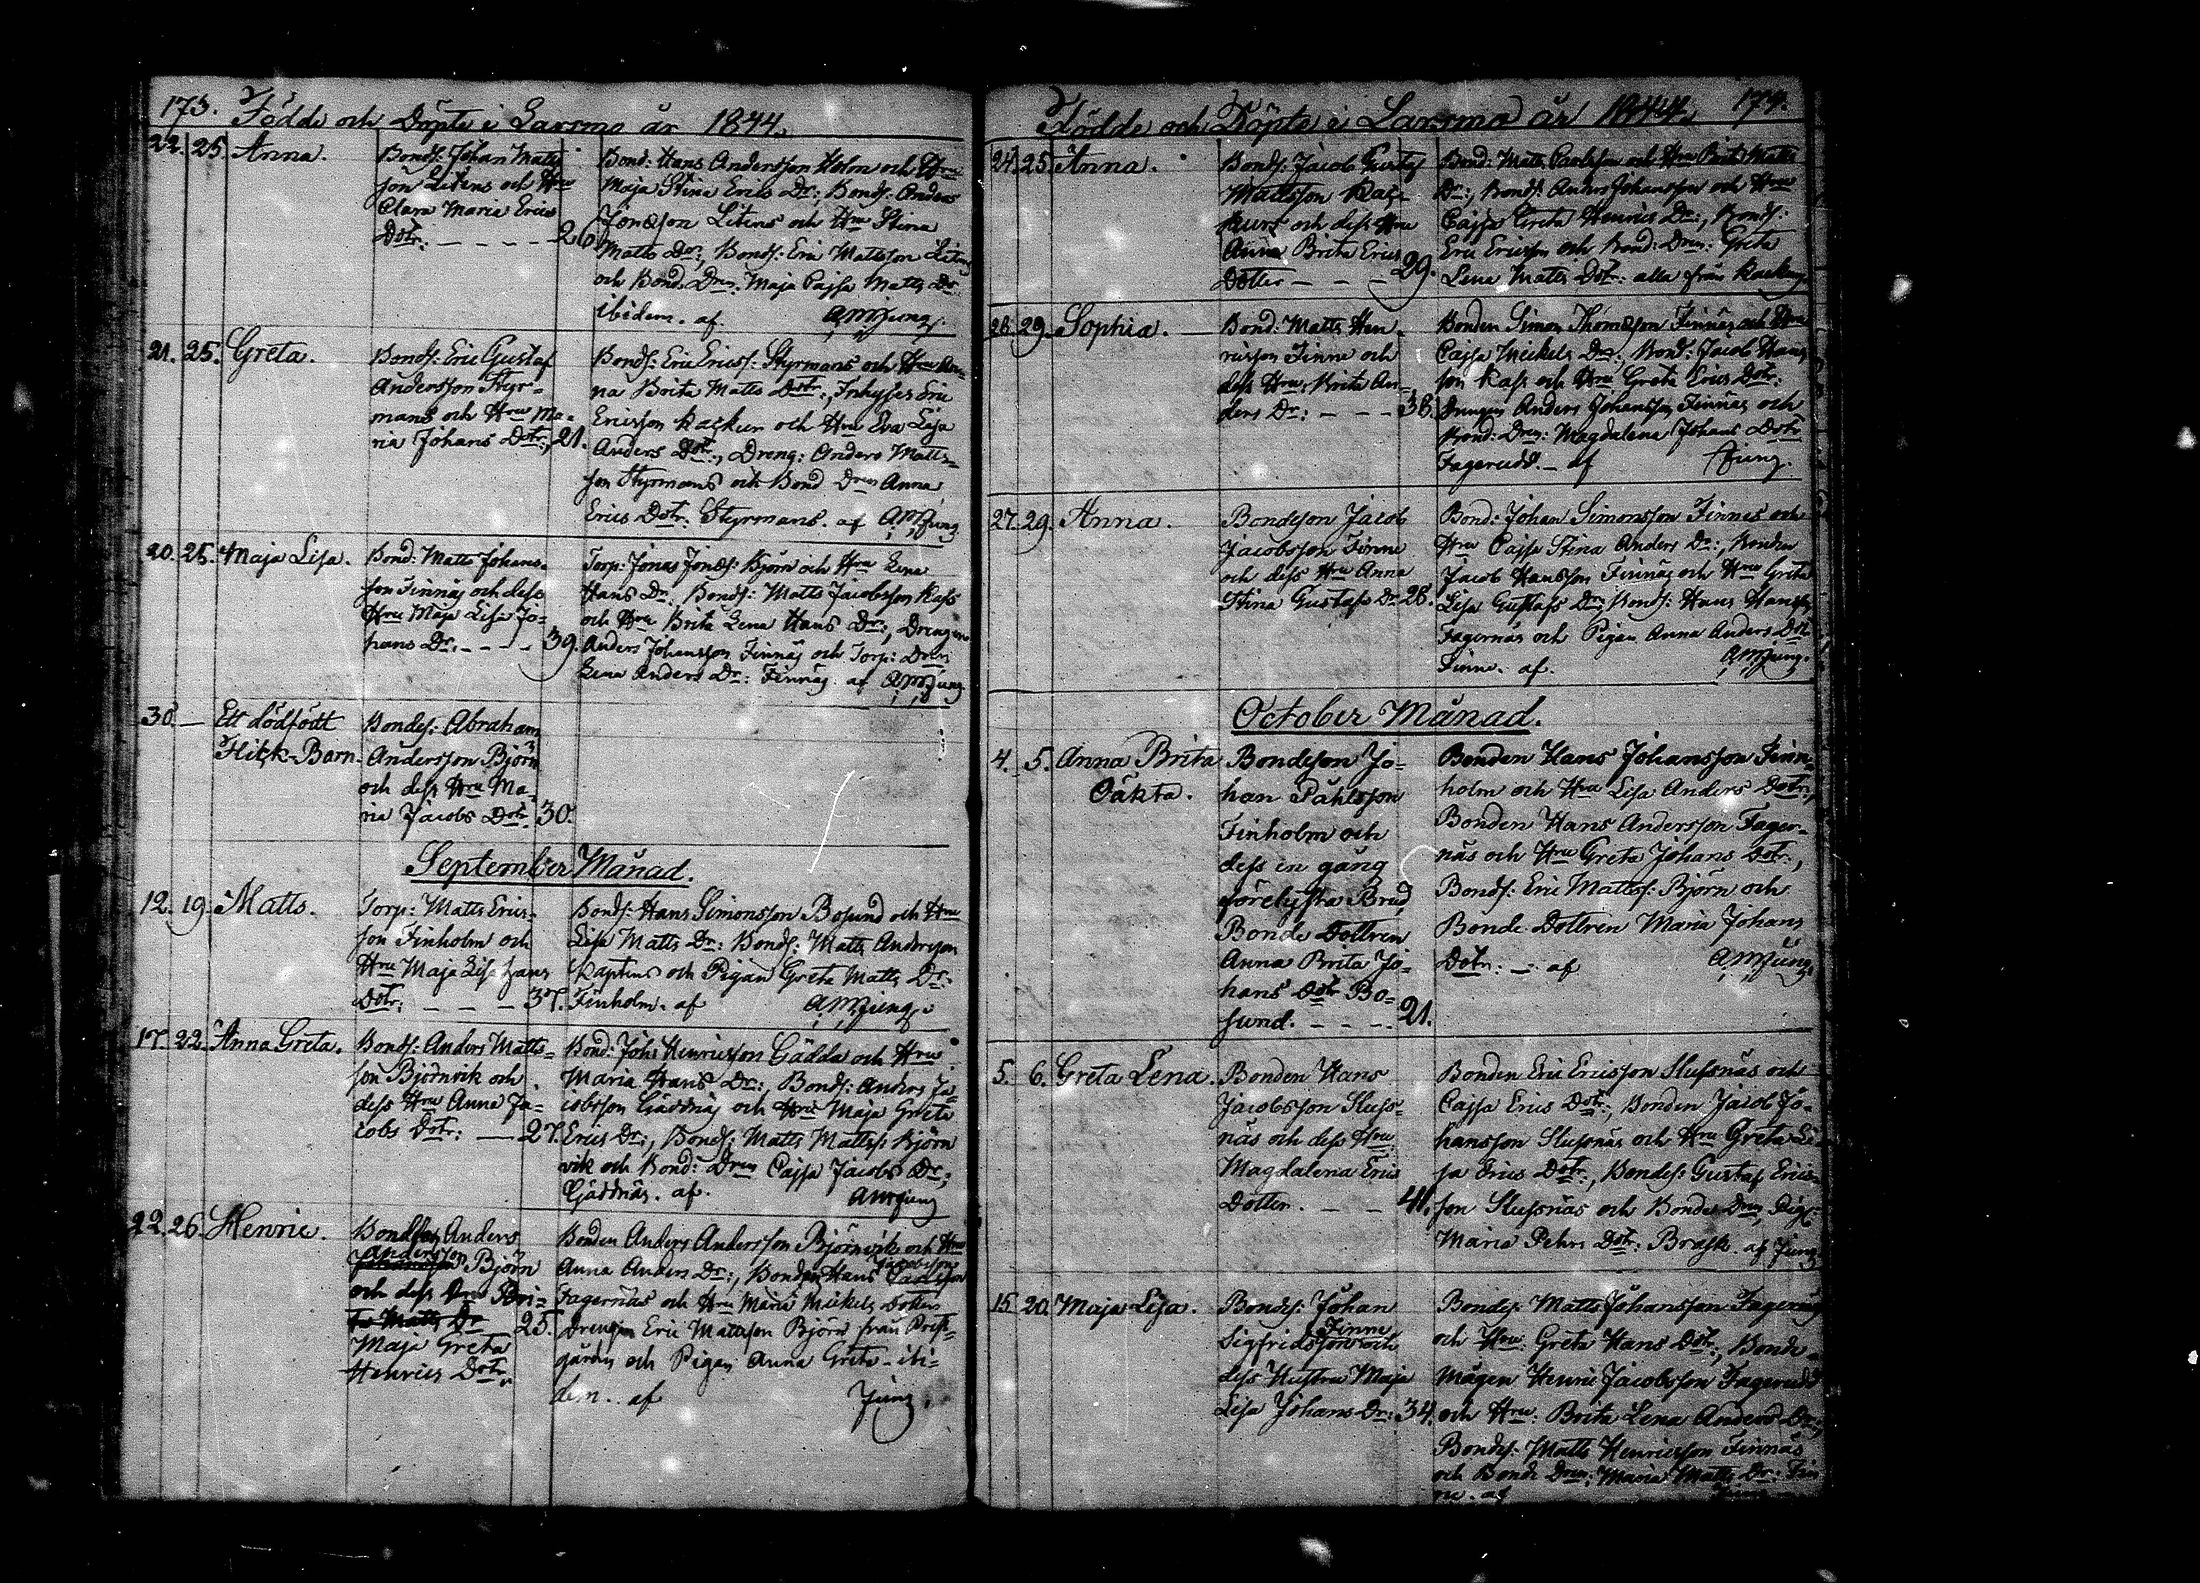 173. Födde och Döpte i Larsmo år 1844.
22. 25. Anna.
Bonds: Johan Matts
son Litens och Hru
Clara Maria Erics
Dotr: 26.
Bond: Hans Andersson Holm och Hru
Maja Stina Erics Dr:, Bonds: Anders
Jonæson Litens och Hru Stina
Matts Dr:, Bonds: Eric Mattsson Litens
och Bond. Drn: Maja Cajsa Matts Dr
ibidem. af AMJung.
21. 25. Greta.
Bonds: Eric Gustaf
Andersson Styr-
mans och Hru Ma-
ria Johans Dotr:, 21.
Bonds: Eric Erics: Styrmans och Hru An-
na Brita Matts Dotr:, Inhyses Eric
Ericsson Kackur och Hru Eva Lisa
Anders Dotr:, Dreng: Anders Matts-
son Styrmans och Bond Drn Anna
Erics Dotr. Styrmans. af AMJung
20. 25. Maja Lisa.
Bond: Matts Johans-
son Finnäs och dess
Hru Maja Lisa Jo-
hans Dr. 39.
Torp: Jonas Jonæs: Björn och Hru Lena
Hans Dr. Bonds: Matts Jacobsson Kass
och Hru Brita Lena Hans Dr:, Drengen
Anders Johansson Finnäs och Torp: Drn
Lena Anders Dr: Finnäs. af AMJung
30. — Ett dödfödt
Flick-Barn.
Bondes: Abraham
Andersson Björn
och dess Hru Ma-
ria Jacobs Dotr. 30.
September Månad.
12. 19. Matts.
Torp: Matts Erics-
son Finholm och
Hru Maja Lisa Hans
Dotr: 37.
Bonds: Hans Simonsson Bosund och Hru
Lisa Matts Dr: Bonds: Matts Andersson
Kaptens och Pigan Greta Matts Dr:
Finholm. af AMJung.
17. 22. Anna Greta.
Bonds: Anders Matts-
son Björnvik och
dess Hru Anna Ja-
cobs Dotr: 27.
Bond: Johs Henricsson Gädda och Hru
Maria Hans Dr:, Bonds: Anders Ja-
cobsson Gäddnäs och Hru Maja Greta
Erics Dr:, Bonds: Matts Matts: Björn
vik och Bond: Drn Cajsa Jacobs Dr:
Gäddnäs. af. AMJung
22. 26. Henric.
Bondson Anders
Andersson Björn
och dess Hru Bri-
ta Matts Dr 25.
Maja Greta
Henrics Dotr.
Bonden Anders Andersson Björnvik och Hru
Anna Anders Dr:, Bonden Hans Jacobsson
Fagernäs och Hru Maria Mickels Dotter
Drengen Eric Mattsson Björn från Prest-
gården och Pigan Anna Greta ibi-
dem. af Jung.
Födde och Döpte i Larsmo år 1844. 174.
24. 25. Anna.
Bonds: Jacob Gustaf
Mattsson Kac-
kurs och dess Hru
Anna Brita Erics
Dotter 29.
Bond: Matts Carlsson och Hru Brita Matts
Dr:, Bonds: Anders Johansson och Hru
Cajsa Greta Henrics Dr:, Bonds:
Eric Ericsson och Bond: Drn: Greta
Lena Matts Dotr: alla från Kackur
28. 29. Sophia.
Bond: Matts Hen-
ricsson Finne och
dess Hru: Brita An-
ders Dr: 38.
Bonden Simon Thomæsson Finnäs och Hru
Cajsa Mickels Dr:, Bond: Jacob Hans
son Kass och Hru Greta Erics Dotr:
Drengen Anders Johansson Finnäs och
Bond: Drn: Magdalena Johans Dotr
Fagerudd. af Jung.
27. 29. Anna.
Bondeson Jacob
Jacobsson Finne
och dess Hru Anna
Stina Gustafs Dr 28.
Bond: Johan Simonsson Finnes och
Hru Cajsa Stina Anders Dr:, Bonden
Jacob Hansson Finnäs och Hru Greta
Lisa Gustafs Dr:, Bonds: Hans Hansson
Fagernäs och Pigan Anna Anders Dotr
Finne. af. AMJung.
October Månad.
4. 5. Anna Brita
Oäkta.
Bondeson Jo-
han Påhlsson
Finholm och
dess en gång
förelysta Brud,
Bonde Dottren
Anna Brita Jo-
hans Dotr Bo-
sund. 21.
Bonden Hans Johansson Finn-
holm och Hru Lisa Anders Dotr:,
Bonden Hans Andersson Fager-
näs och Hru Greta Johans Dotr:,
Bonds: Eric Matts: Björn och
Bonde Dottren Maria Johans
Dotr: af AMJung.
5. 6. Greta Lena.
Bonden Hans
Jacobsson Sluss-
näs och dess Hru
Magdalena Erics
Dotter. 41.
Bonden Eric Ericsson Slussnäs och
Cajsa Erics Dotr:, Bonden Jacob Jo-
hansson Slussnäs och Hru Greta Li-
sa Erics Dotr:, Bondes: Gustaf Erics-
son Slussnäs och Bonde Drn, Pig:
Maria Pehrs Dotr: Brask. af Jung
15. 20. Maja Lisa.
Bondes: Johan
Sigfridsson Finne och
dess Hustru Maja
Lisa Johans Dr: 34.
Bondes: Matts Johansson Fagerudd
och Hru: Greta Hans Dotr:, Bonde-
Mågen Henric Jacobsson Fagerudd
och Hru: Brita Lena Anders Dr:
Bondes: Matts Henricsson Finnäs
och Bonde Drn: Maria Matts Dr: Fin
ne. af